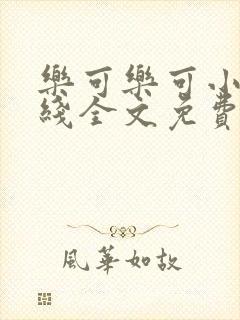 樂可樂可小
綫全文免費
風華如故